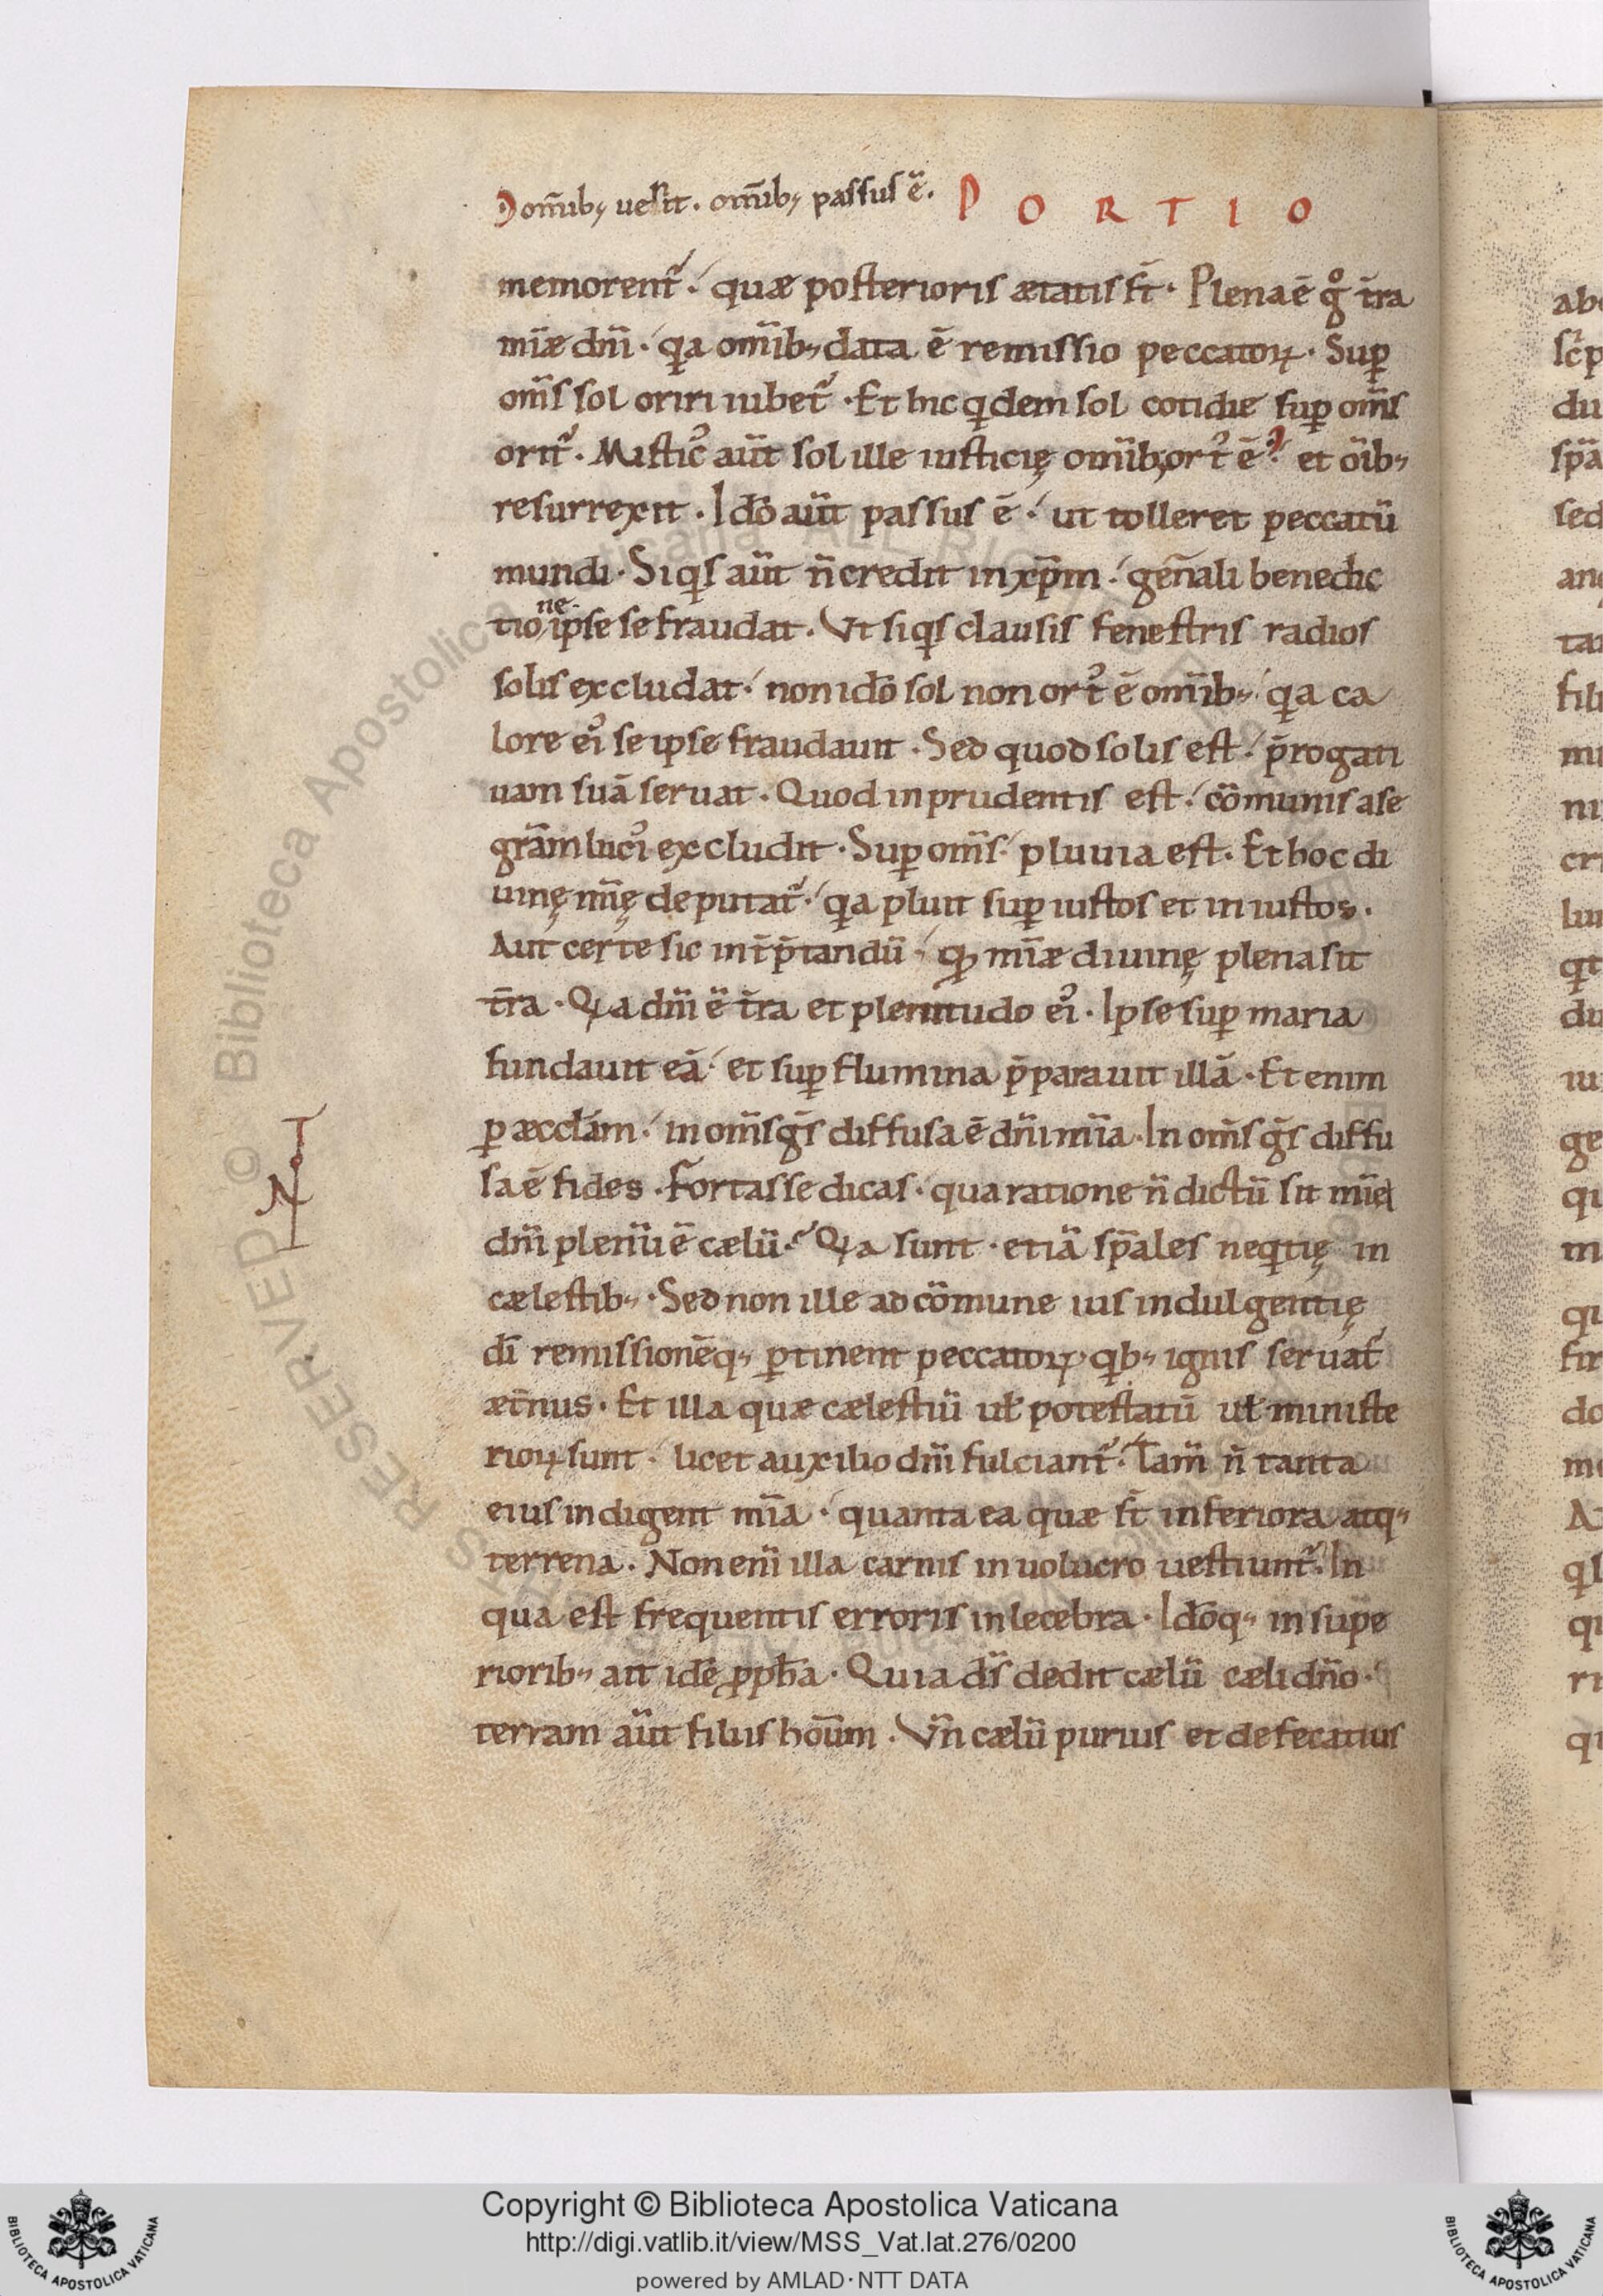 omīb; uenit. omīb; passus ē. P O R T I O
memorent᷑. quæ posterioris ætatis st̄. Plena ē gͦ tr̄a
mīæ dn̄i. qa omīb; data ē remissio peccatoꝝ. Suꝑ
om̄s sol oriri iubet᷑. Et hic qdem sol cotidie suꝑ om̄s
orit᷑. Misticꝰ aūt sol ille iusticię omīb; ortꝰ ē. et oīb;
resurrexit. Idō aūt passus ē. ut tolleret peccatū
mundi. Si qs aūt n̄ credit in xp̄m. gen̄ali benedic
tione ipse se fraudat. Vt si qs clausis fenestris radios
solis excludat. non idō sol non ortꝰ ē omīb; qa ca
lore eiꝰ se ipse fraudauit. Sed quod solis est. p̄rogati
uam suā seruat. Quod inprudentis est. cōmunis a se
grām lucꝰ excludit. Suꝑ om̄s pluuia est. Et hoc di
uinę mīę deputat᷑. qa pluit suꝑ iustos et iniustos.
Aut certe sic int̄p̄tandū. qđ mīæ diuinę plena sit
tr̄a. Qa dn̄i ē tr̄a et plenitudo eiꝰ. Ipse suꝑ maria
fundauit eā. et suꝑ flumina p̄parauit illā. Etenim
ꝑ æccl̄am. in om̄s gs̄ diffusa ē dn̄i mīa. In om̄s gs̄ diffu
sa ē fides. Fortasse dicas. qua ratione n̄ dictū sit mīę
dn̄i plenū ē cælū. Qa sunt. etiā sp̄ales neqtię in
cælestib;. Sed non ille ad cōmune ius indulgentię
dī remissionēq; ꝑtinent peccatoꝝ. qb; ignis seruat᷑
æt̄nus. Et illa quæ cælestiū uł potestatū uł ministe
rioꝝ sunt. licet auxilio dn̄i fulciant᷑. Tam̄ n̄ tanta
eius indigent mīa. quanta ea quæ st̄ inferiora atq;
terrena. Non enī illa carnis inuolucro uestiunt᷑. In
qua est frequentis erroris inlecebra. Idōq; in supe
riorib; ait idē ꝓph̄a. Quia ds̄ dedit cælū cæli dn̄o.
terram aūt filiis hoūm. Vn̄ cælū purius et defecatius
Copyright © Biblioteca Apostolica Vaticana
http://digi.vatlib.it/view/MSS_Vat.lat.276/0200
powered by AMLAD·NTT DATA